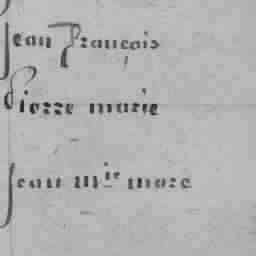 Jean François
Pierre marie
Jean mie marc